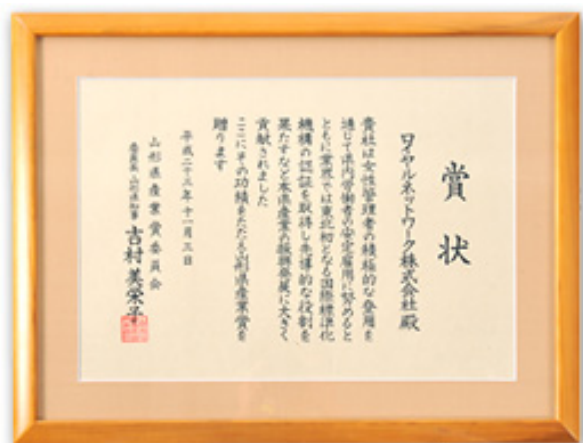 賞状
ロイヤルネットワーク株式会社殿
貴社は女性管理者の積極的な登用を
通じて県内労働者の安定雇用に努めると
ともに業界では東北初となる国際標準化
機構の認証を取得し先導的な役割を
果たすなど本県産業の振興発展に大きく
貢献されました
ここにその功績をたたえ山形県産業賞を
贈ります
平成二十三年十一月三日
山形県産業賞委員会
委員長 山形県知事 吉村美栄子